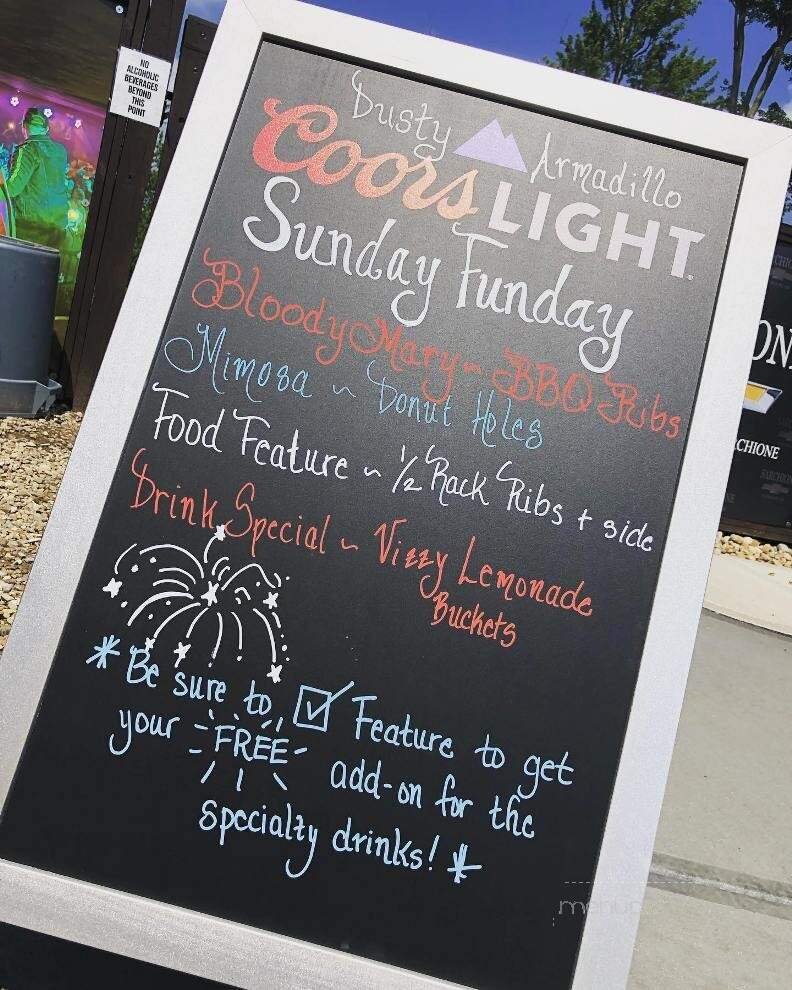 NO
ALCOHOLIC
BEVERAGES
BEYOND
THIS
POINT
Dusty Armadillo
Coors LIGHT
Sunday Funday
Bloody Mary ~ BBQ Ribs
Mimosa ~ Donut Holes
Food Feature ~ 1/2 Rack Ribs + side
Drink Special ~ Vizzy Lemonade
Buckets
* Be sure to ☑ Feature to get
your FREE add-on for the
specialty drinks! *
CHIONE